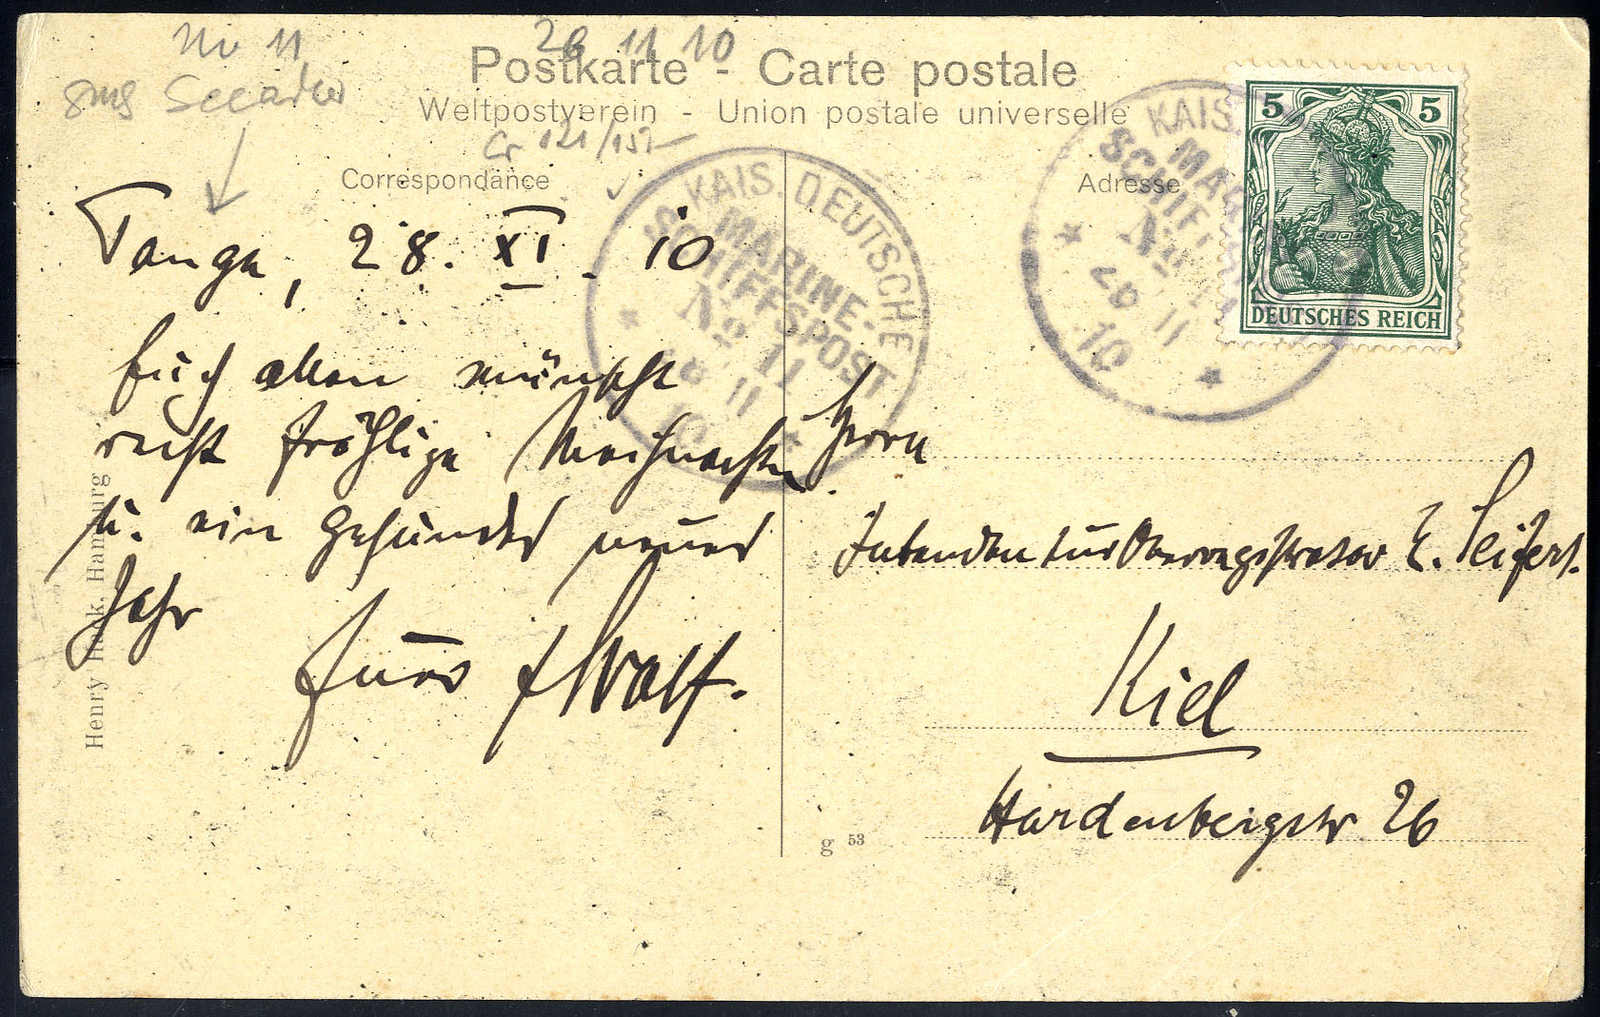 No 11
26 11 10
SMS Seeadler
Postkarte - Carte postale
Weltpostverein - Union postale universelle
Cr 121/151-
Correspondance
Adresse
Tanga, 28. XI. 10
Euch allen wünscht
recht fröhliche Weihnachten
u. ein gesundes neues
Jahr
Euer Wolf.
KAIS. DEUTSCHE
MARINE-
SCHIFFSPOST
No 11
11
10
KAIS.
MAR
SCHIFF
No
26
11
10
5 5
DEUTSCHES REICH
Herrn
Intendantur E. Seifert.
Kiel
Hardenbergstr 26
Henry Hamburg
g 53